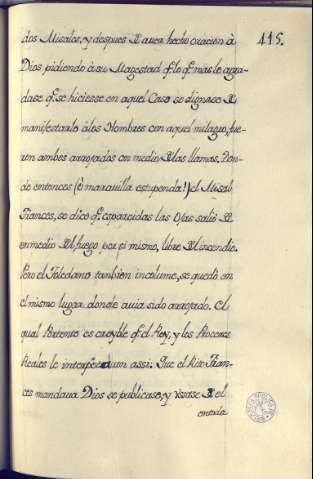 415.
dos Misales, y despues de auer hecho oracion à
Dios pidiendo à su Magestad q̃ lo q̃ mas le agra-
dase q̃ se hiciesse en aquel Caso se dignase de
manifestarlo à los Hombres con aquel milagro, fue-
ron ambos arrojados en medio de las llamas. Don-
de entonces (ò marauilla estupenda!) el Misal
Frances, se dice q̃ esparcidas las Ojas salió de
enmedio del fuego por si mismo, libre del incendio.
Pero el Toledano tambien incolume, se quedó en
el mismo lugar donde auia sido arrojado. El
qual Portento es creyble q̃ el Rey, y los Proceres
Reales le interpretarian assi: Que el Rito Fran-
ces mandaua Dios se publicase, y usase de el
entrada